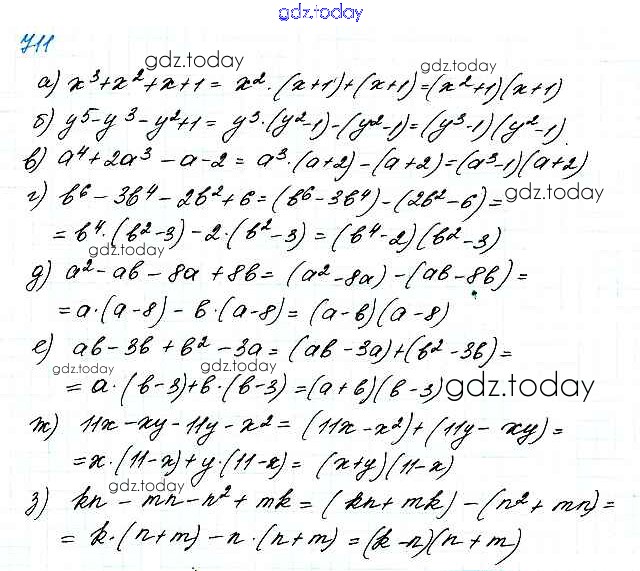 gdz.today
711
gdz.today gdz.today
а) x³+x²+x+1= x²·(x+1)+(x+1)=(x²+1)(x+1)
б) y⁵-y³-y²+1= y³·(y²-1)-(y²-1)=(y³-1)(y²-1).
в) a⁴+2a³-a-2=a³·(a+2)-(a+2)=(a³-1)(a+2)
г) b⁶-3b⁴-2b²+6=(b⁶-3b⁴)-(2b²-6)=
gdz.today
=b⁴·(b²-3)-2·(b²-3)=(b⁴-2)(b²-3)
gdz.today
д) a²-ab-8a+8b=(a²-8a)-(ab-8b)=
=a·(a-8)-b·(a-8)=(a-b)(a-8)
е) ab-3b+b²-3a=(ab-3a)+(b²-3b)=
gdz.today gdz.today
=a·(b-3)+b·(b-3)=(a+b)(b-3)
gdz.today
ж) 11x-xy-11y-x²=(11x-x²)+(11y-xy)=
=x·(11-x)+y·(11-x)=(x+y)(11-x)
gdz.today
з) kn-mn-n²+mk=(kn+mk)-(n²+mn)=
=k·(n+m)-n·(n+m)=(k-n)(n+m)